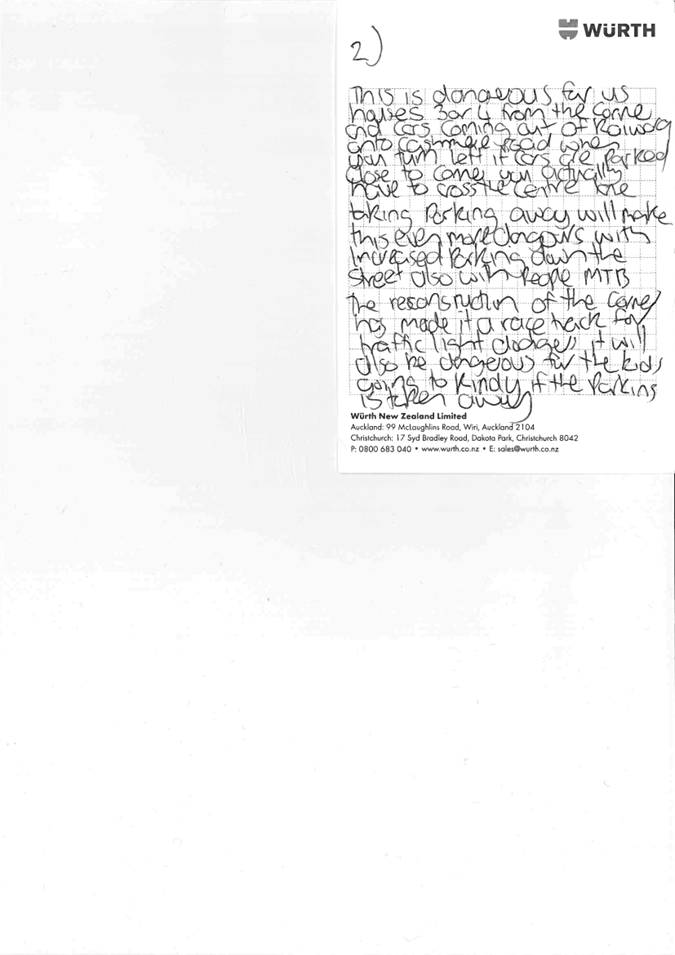 WÜRTH
2)
This is dangerous for us
houses 3or 4 from the corne
and cars coming out of
onto cashmere road when
you turn left if cars are parked
close to corner you actually
have to cross the centre line
taking Parking away will make
this even more dangerous with
increased Parking down the
street also with People MTB
the reconstruction of the corner
has made it a race track for
traffic light dodgers it will
also be dangerous for the kids
going to kindy if the Parking
is taken away
Würth New Zealand Limited
Auckland: 99 McLaughlins Road, Wiri, Auckland 2104
Christchurch: 17 Syd Bradley Road, Dakota Park, Christchurch 8042
P: 0800 683 040 • www.wurth.co.nz • E: sales@wurth.co.nz